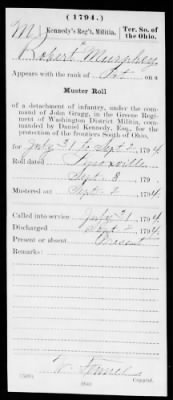 (1794.)
M | Kennedy's Reg't, Militia. | Ter. So. of the Ohio.
Robert Murphey
Appears with the rank of Pvt. on a
Muster Roll
of a detachment of infantry, under the command of John Gragg, in the Greene Regiment of Washington District Militia, commanded by Daniel Kennedy, Esq., for the protection of the frontiers South of Ohio,
for July 31 to Sept 2, 1794
Roll dated Knoxville
Sept. 8, 1794
Mustered out Sept. 2, 1794
Called into service July 31, 1794
Discharged Sept. 2, 1794
Present or absent Present
Remarks:
Copyist.